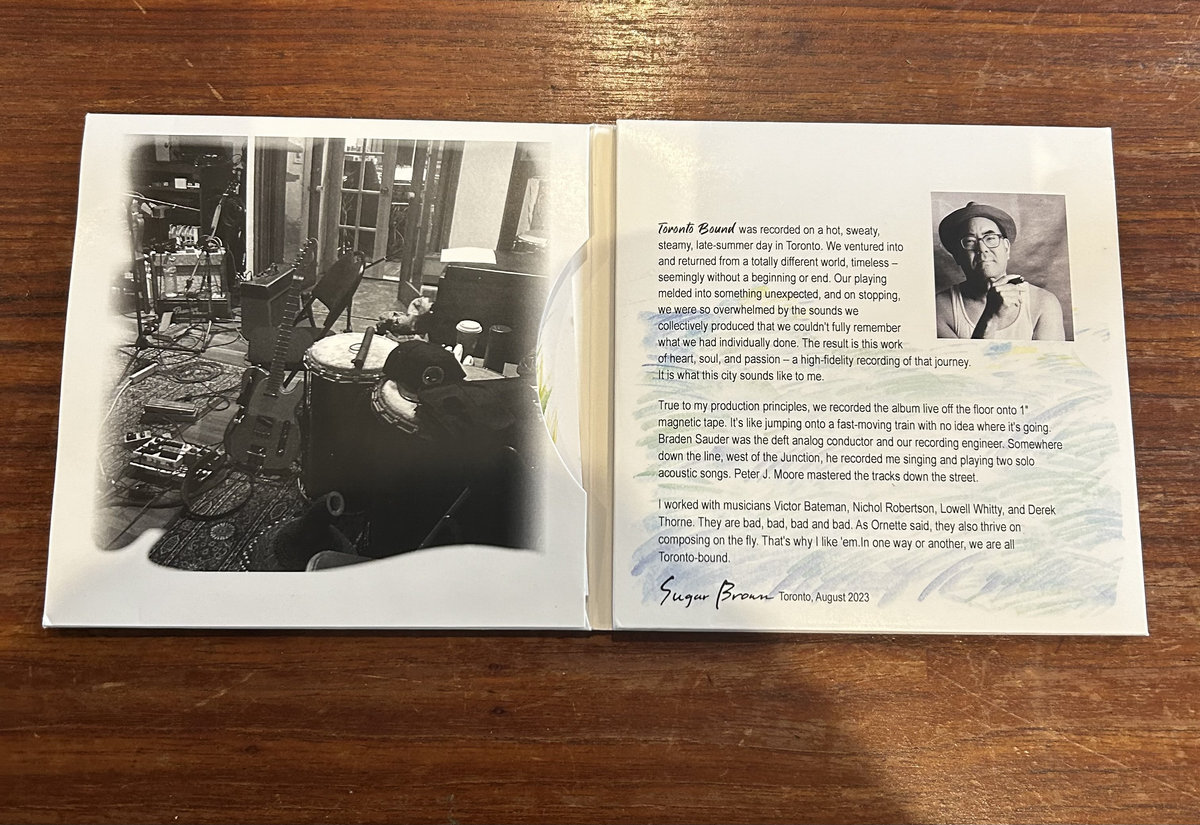 Toronto Bound was recorded on a hot, sweaty,
steamy, late-summer day in Toronto. We ventured into
and returned from a totally different world, timeless –
seemingly without a beginning or end. Our playing
melded into something unexpected, and on stopping,
we were so overwhelmed by the sounds we
collectively produced that we couldn't fully remember
what we had individually done. The result is this work
of heart, soul, and passion – a high-fidelity recording of that journey.
It is what this city sounds like to me.
True to my production principles, we recorded the album live off the floor onto 1"
magnetic tape. It's like jumping onto a fast-moving train with no idea where it's going.
Braden Sauder was the deft analog conductor and our recording engineer. Somewhere
down the line, west of the Junction, he recorded me singing and playing two solo
acoustic songs. Peter J. Moore mastered the tracks down the street.
I worked with musicians Victor Bateman, Nichol Robertson, Lowell Whitty, and Derek
Thorne. They are bad, bad, bad and bad. As Ornette said, they also thrive on
composing on the fly. That's why I like 'em.In one way or another, we are all
Toronto-bound.
Sugar Brown Toronto, August 2023